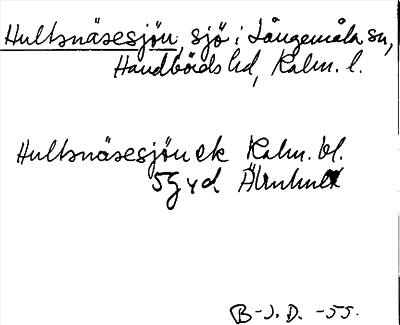 Hultsnäsesjön, sjö i Långemåla sn,
Handbörds hd, Kalm. l.
Hultsnäsesjön ek Kalm. bl.
5G yd
B-J. D. -55.